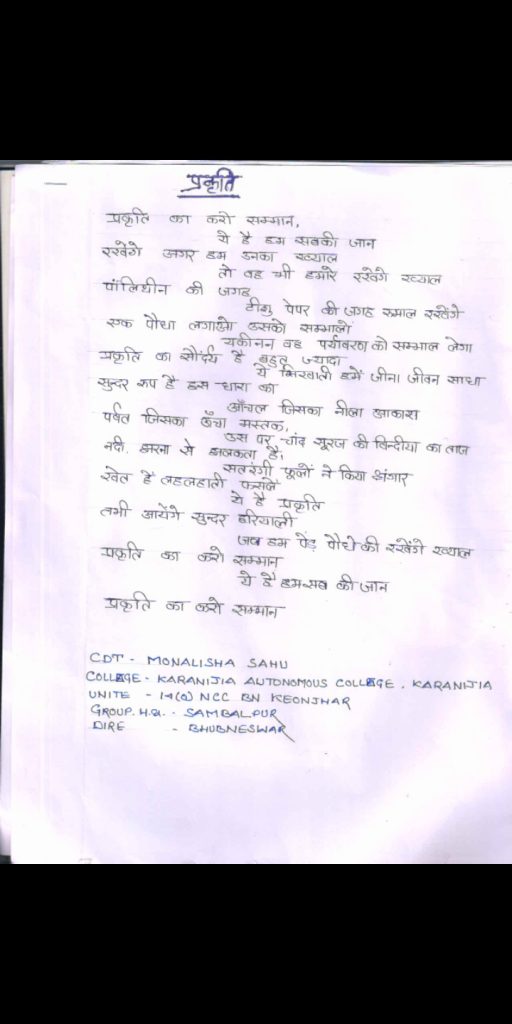 प्रकृति
प्रकृति का करो सम्मान,
ये है हम सबकी जान
रखेंगे अगर हम उनका ख्याल
तो वह भी हमारे रखेंगे ख्याल
पॉलिथीन की जगह
टीशु पेपर की जगह रुमाल रखेंगे
एक पौधा लगाओ उसको सम्भालो
यकीनन वह पर्यावरण को सम्भाल लेगा
प्रकृति का सौंदर्य है बहुत ज्यादा
ये सिखाती हमें जीना जीवन साधा
सुन्दर रूप है इस धारा का
आँचल जिसका नीला आकाश
पर्वत जिसका ऊँचा मस्तक,
उस पर चाँद सूरज की बिन्दीया का ताज
नदी, झरना से झलकता है,
सतरंगी फूलों ने किया श्रृंगार
खेत हैं लहलहाती फसलें
ये है प्रकृति
तभी आयेंगे सुन्दर हरियाली
जब हम पेड़ पौधे की रखेंगे ख्याल
प्रकृति का करो सम्मान
ये है हम सब की जान
प्रकृति का करो सम्मान
CDT - MONALISHA SAHU
COLLEGE - KARANJIA AUTONOMOUS COLLEGE, KARANJIA
UNITE - 14(O) NCC BN KEONJHAR
GROUP. H.Q. - SAMBALPUR
DIRE - BHUBNESWAR